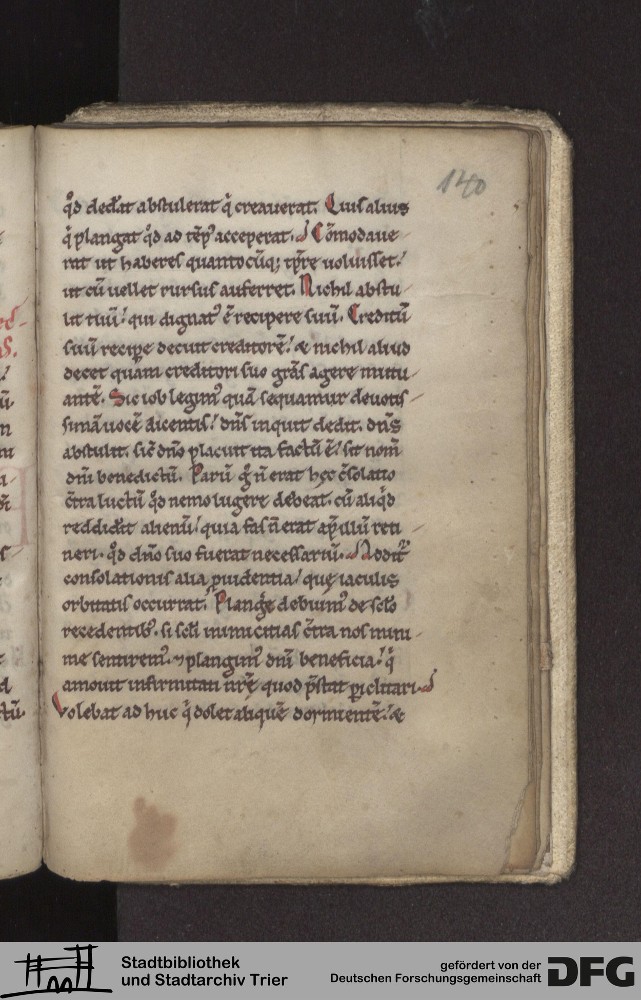 140
q̊d ded̾at abstulerat q̇ creauerat. Cuiꝰ aliuſ
q̇ plangat q̊d ad tēpꝰ acceperat. Cōmodaue-
rat ut habereſ quantocūq; tp̄re uoluiſſet.
ut cū uellet rurſuſ auferret. Nichil abſtu-
lit tuū. qui dignatꝰ ē recipere ſuū. Creditū
ſuū recipe decuit creditorē. & nichil aliud
decet quam creditori ſuo gr̄aſ agere mutu-
antē. Sic iob legimꝰ quā ſequamur deuotiſ-
ſimā uocē dicentiſ. dn̄ſ inquit dedit. dn̄ſ
abſtulit. ſic̄ dn̄o placuit ita factū ē. ſit nom̄
dn̄i benedictū. Parū g̊ n̄ erat hęc c̄ſolatio
c̄tra luctū q̊d nemo lugere debeat. cū aliq̇d
reddid̾it alienū. quia faſ n̄ erat ap̄ illū reti-
neri. q̊d dn̄o ſuo fuerat neceſſariū. Addit᷑
conſolationiſ alia puidentia. quę iaculiſ
orbitatiſ occurrat. Plang̾e debuimꝰ de ſclo
recedentibꝰ. ſi ſcl̄i inimicitiaſ c̄tra noſ mini-
me ſentiremꝰ. & plangimꝰ dn̄i beneficia. q̇
amouit infirmitati nr̄ę quod p̄ſtit periclitari.
Volebat ad huc q̇ dolet aliquē dormientē. &
Stadtbibliothek
und Stadtarchiv Trier
gefördert von der
Deutschen Forschungsgemeinschaft
DFG